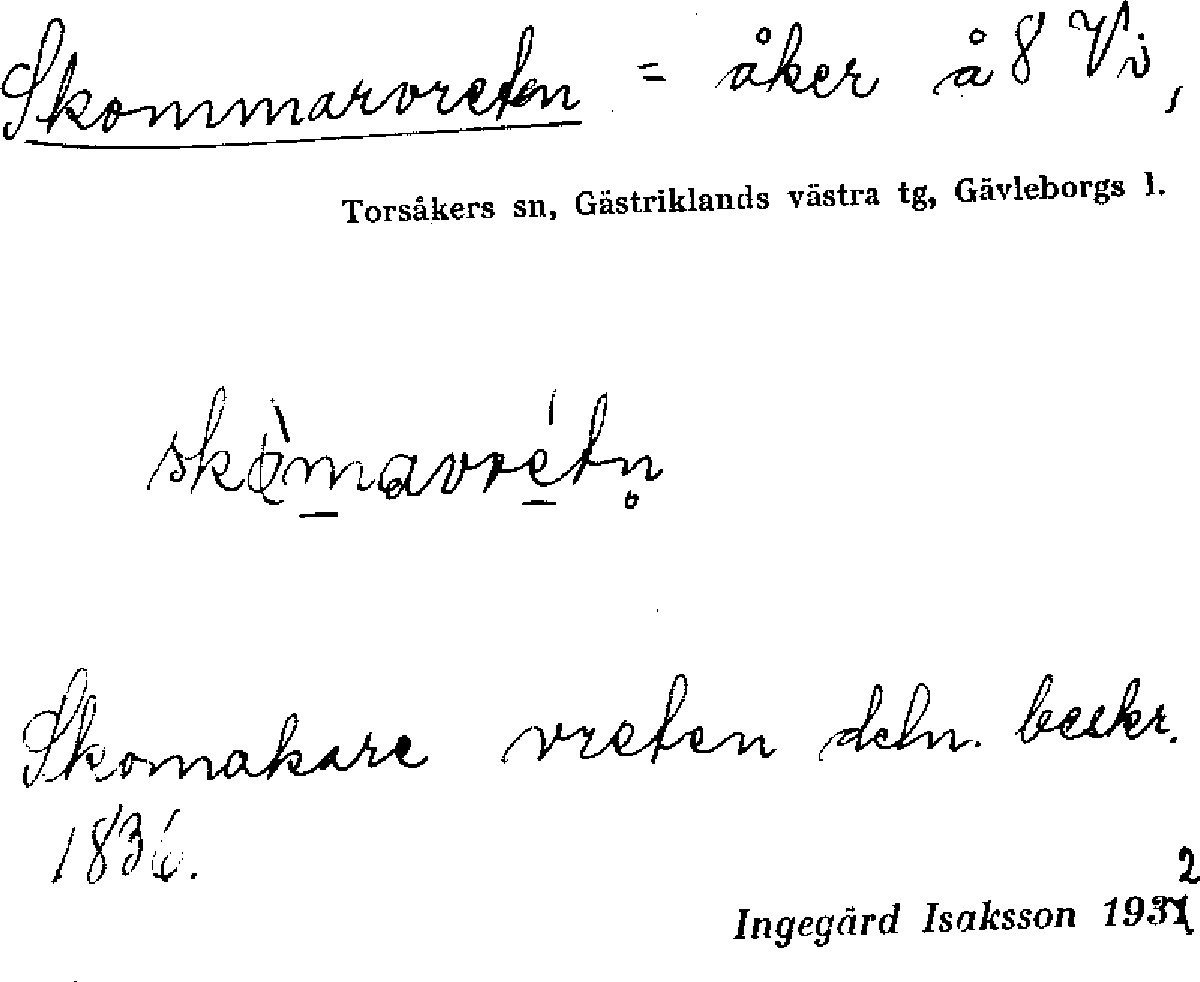 Skommarvreten = åker å 8 Vi,
Torsåkers sn, Gästriklands västra tg, Gävleborgs l.
skòmavrétn̥
Skomakare vreten deln. beskr.
1836.
Ingegärd Isaksson 1932